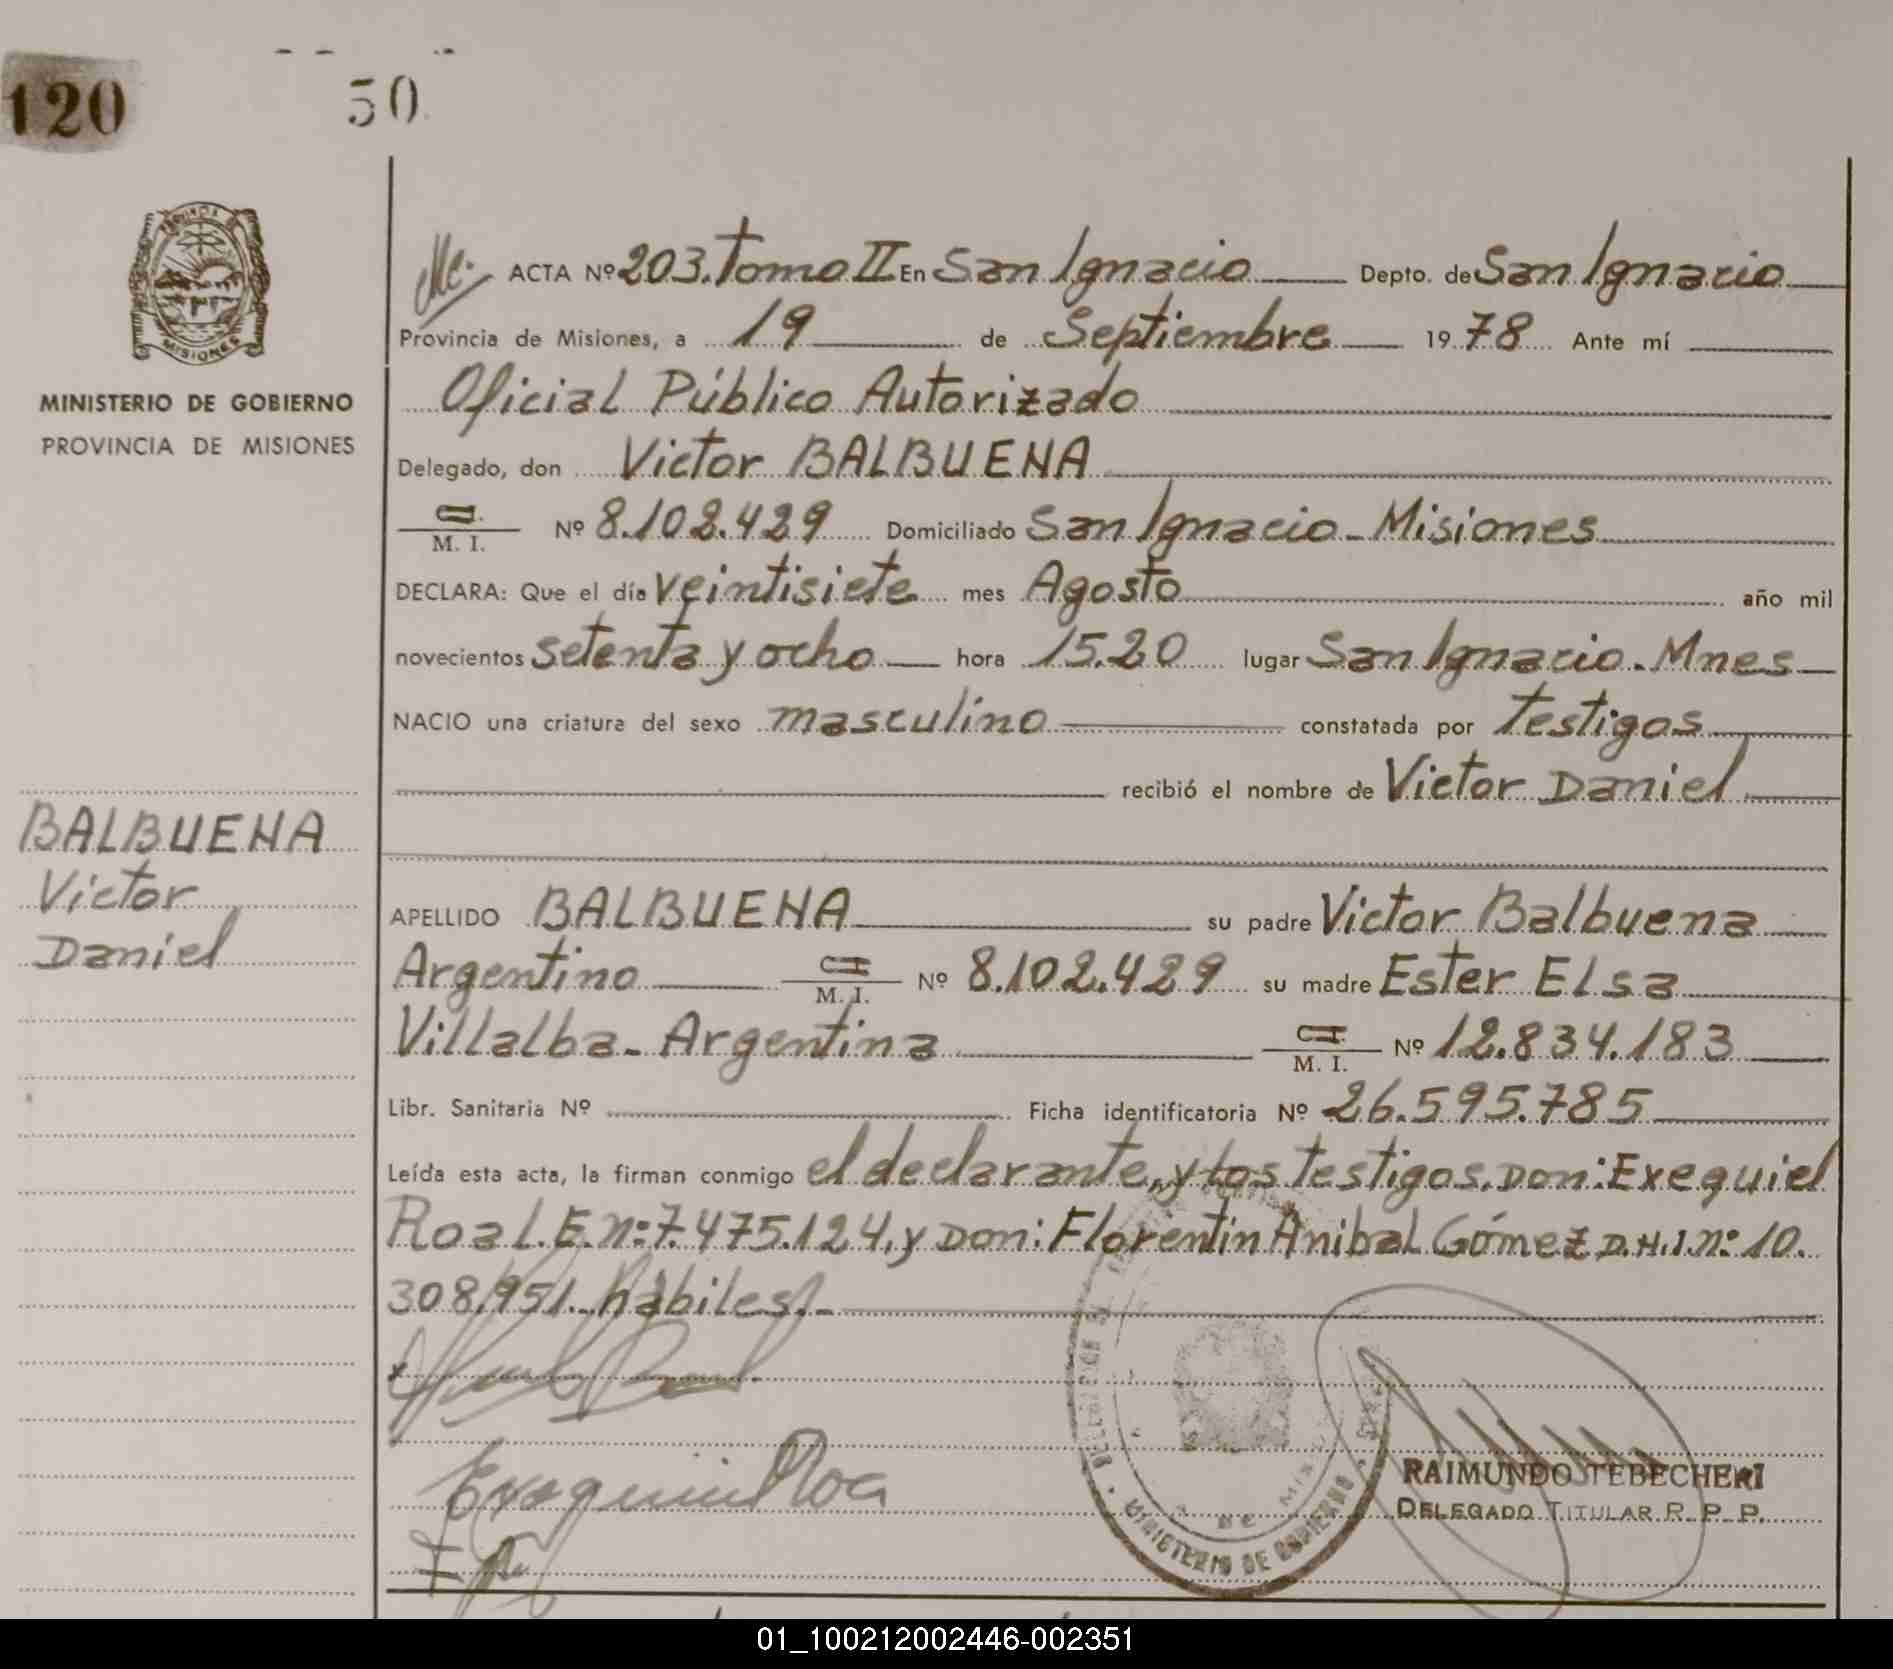 120 50
ACTA Nº 203. Tomo II En San Ignacio Depto. de San Ignacio
Provincia de Misiones, a 19 de Septiembre 1978 Ante mí
MINISTERIO DE GOBIERNO
PROVINCIA DE MISIONES
Oficial Público Autorizado
Delegado, don Victor BALBUENA
C.I.
M. I. Nº 8.102.429 Domiciliado San Ignacio - Misiones
DECLARA: Que el día veintisiete mes Agosto año mil
novecientos setenta y ocho hora 15.20 lugar San Ignacio - Mnes
NACIO una criatura del sexo masculino constatada por testigos
recibió el nombre de Victor Daniel
BALBUENA
Victor
Daniel
APELLIDO BALBUENA su padre Victor Balbuena
Argentino C.I. M. I. Nº 8.102.429 su madre Ester Elsa
Villalba - Argentina C.I. M. I. Nº 12.834.183
Libr. Sanitaria Nº Ficha identificatoria Nº 26.595.785
Leída esta acta, la firman conmigo el declarante, y los testigos, Don: Exequiel
Roa L.E. nº 7.475.124, y Don: Florentin Anibal Gómez D.N.I. nº 10.
308.951. hábiles. -
Exequiel Roa
MINISTERIO DE GOBIERNO
RAIMUNDO TEBECHERI
DELEGADO TITULAR R. P. P.
01_100212002446-002351